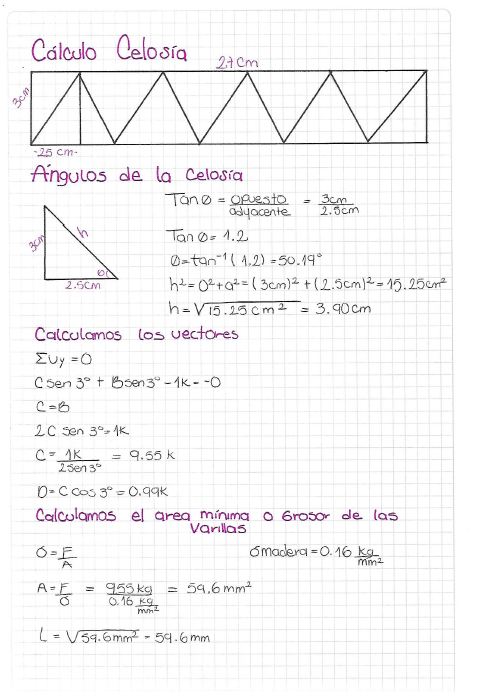 Cálculo Celosía
27cm
3cm
-25 cm-
Ángulos de la Celosía
3cm
h
θ
2.5cm
Tan θ = opuesto / adyacente = 3cm / 2.5cm
Tan θ = 1.2
θ = tan⁻¹ (1.2) = 50.19°
h² = o² + a² = (3cm)² + (2.5cm)² = 15.25cm²
h = √15.25cm² = 3.90cm
Calculamos los vectores
ΣUy = 0
C sen 3° + Bsen 3° - 1k - -0
C = B
2C sen 3° = 1k
C = 1k / 2sen3° = 9.55 k
D = C cos 3° = 0.99k
Calculamos el area mínima o Grosor de las
Varillas
σ = F / A
σmadera = 0.16 kg / mm²
A = F / σ = 955kg / 0.16 kg / mm² = 59.6 mm²
L = √59.6mm² - 59.6mm